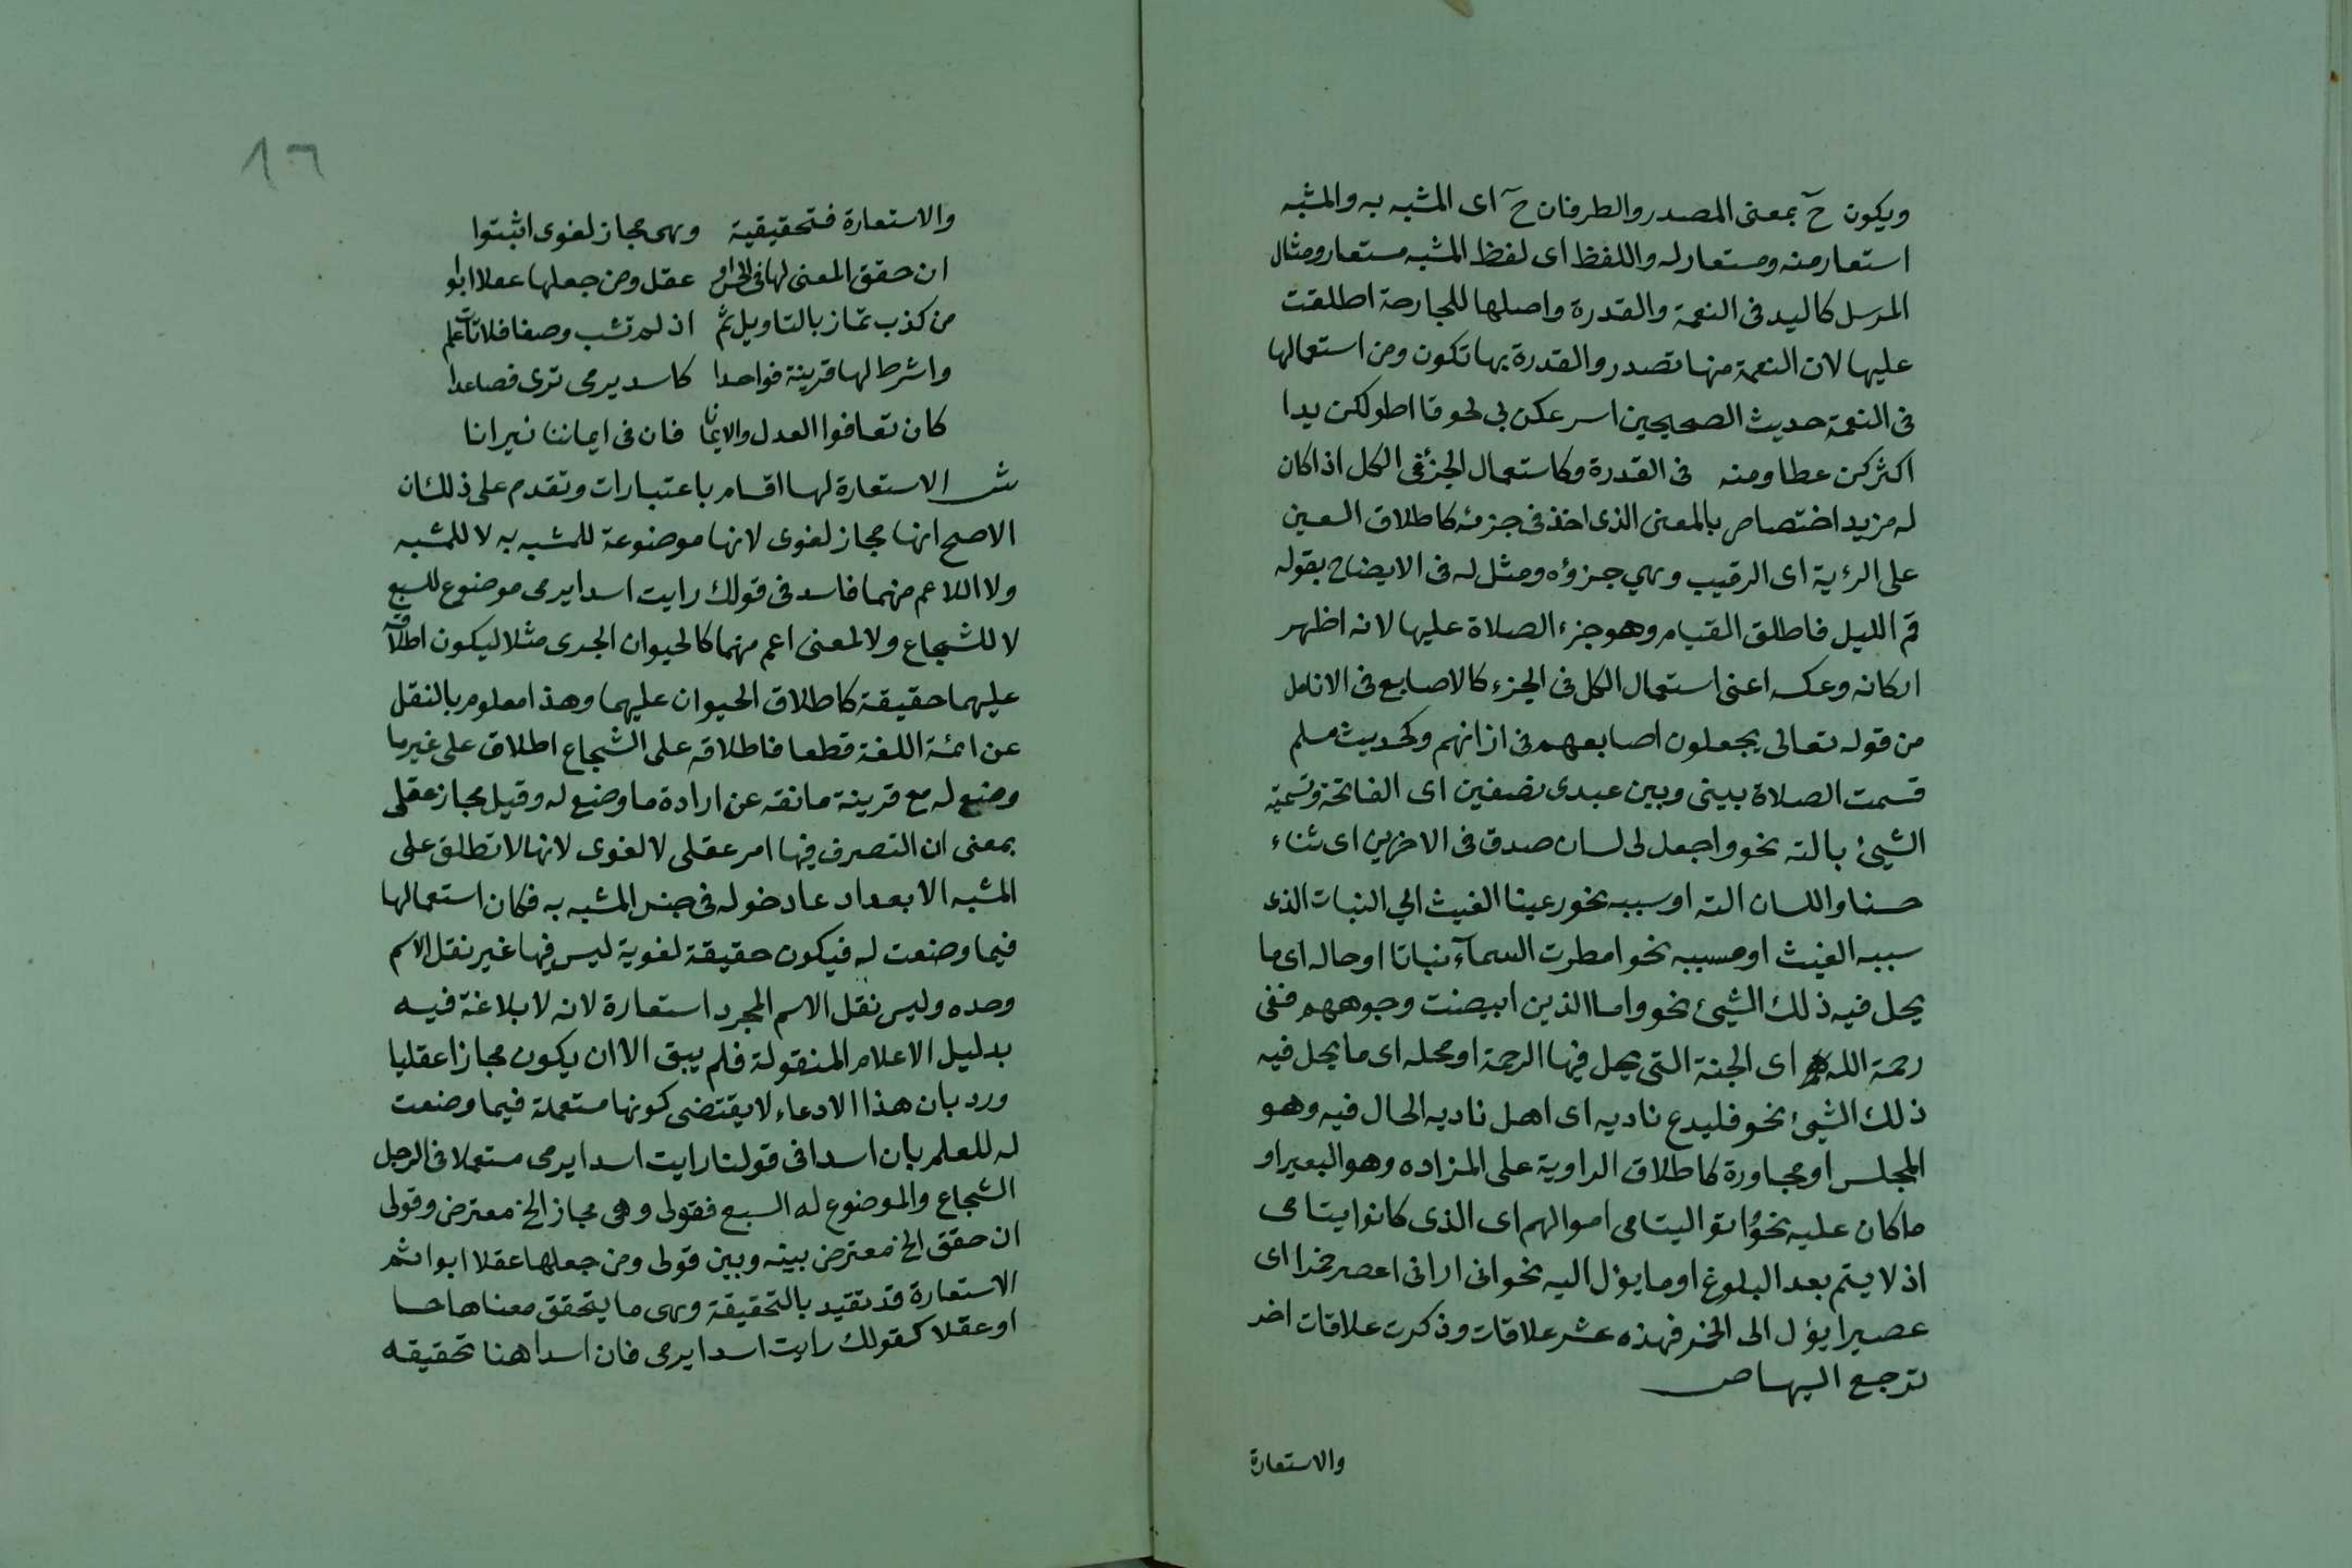 ويكون ح بمعنى المصدر والطرفان ح اى المشبه به والمشبه
استعار منه ومستعار له واللفظ اى لفظ المشبه مستعار ومثال
المرسل كاليد فى النعمة والقدرة واصلها للجارحة اطلقت
عليها لان النعمة منها تصدر والقدرة بها تكون ومن استعمالها
فى النعمة حديث الصحيحين اسرعكن بى لحوقا اطولكن يدا
اكثركن عطا ومنه فى القدرة وكاستعمال الجزء فى الكل اذا كان
له مزيد اختصاص بالمعنى الذى اخذ فى جزئه كاطلاق العين
على الرؤية اى الرقيب وهي جزؤه ومثل له فى الايضاح بقوله
قم الليل فاطلق القيام وهو جزء الصلاة عليها لانه اظهر
اركانه وعكسه اعنى استعمال الكل فى الجزء كالاصابع فى الانامل
من قوله تعالى يجعلون اصابعهم فى اذانهم وكحديث مسلم
قسمت الصلاة بينى وبين عبدى نصفين اى الفاتحة وتسمية
الشيئ بالته نحو واجعل لى لسان صدق فى الاخرين اى ثناء
حسنا واللسان الته او سببه نحو رعينا الغيث الي النبات الذى
سببه الغيث او مسببه نحو امطرت السمآء نباتا او حاله اى ما
يحل فيه ذلك الشيئ نحو واما الذين ابيضت وجوههم ففى
رحمة الله اى الجنة التى يحل فيها الرحمة او محله اى ما يحل فيه
ذلك الشيئ نحو فليدع ناديه اى اهل ناديه الحال فيه وهو
المجلس او مجاورة كاطلاق الراوية على المزاده وهو البعير او
ما كان عليه نحو اتوا اليتامى اموالهم اى الذى كانوا يتامى
اذ لا يتم بعد البلوغ او ما يؤل اليه نحو انى ارانى اعصر خمرا اى
عصيرا يؤل الى الخمر فهذه عشر علاقات وذكرت علاقات اخر
ترجع اليها ص
والاستعارة
١٦
والاستعارة فتحقيقية وهى مجاز لغوى اثبتوا
ان حقق المعنى لها فى الحس او عقل ومن جعلها عقلا ابوا
من كذب تماز بالتاويل ثم اذ لم تشب وصفا فلا تات علم
واشرط لها قرينة فواحدا كاسد يرمى ترى فصاعدا
كان تعافوا العدل والايمانا فان فى ايماننا نيرانا
ش الاستعارة لها اقسام باعتبارات وتقدم على ذلك ان
الاصح انها مجاز لغوى لانها موضوعة للمشبه به لا للمشبه
ولا اللاعم منهما فاسد فى قولك رايت اسدا يرمى موضوع للسبع
لا للشجاع ولا لمعنى اعم منهما كالحيوان الجرى مثلا ليكون اطلاقه
عليهما حقيقة كاطلاق الحيوان عليهما وهذا معلوم بالنقل
عن ائمة اللغة قطعا فاطلاقه على الشجاع اطلاق على غير ما
وضع له مع قرينة مانقه عن ارادة ما وضع له وقيل مجاز عقلى
بمعنى ان التصرف فيها امر عقلى لا لغوى لانها لا تطلق على
المشبه الا بعد ادعا دخوله فى جنس المشبه به فكان استعمالها
فيما وضعت له فيكون حقيقة لغوية ليس فيها غير نقل الاسم
وحده وليس نقل الاسم المجرد استعارة لانه لا بلاغة فيه
بدليل الاعلام المنقولة فلم يبق الا ان يكون مجازا عقليا
ورد بان هذا الادعاء لا يقتضى كونها مستعملة فيما وضعت
له للعلم بان اسدا فى قولنا رايت اسدا يرمى مستعملا فى الرجل
الشجاع والموضوع له السبع فقولى وهى مجاز الخ معترض وقولى
ان حقق الخ معترض بينه وبين قولى ومن جعلها عقلا ابوا ثم
الاستعارة قد تقيد بالتحقيقة وهى ما يتحقق معناها حسا
او عقلا كقولك رايت اسدا يرمى فان اسدا هنا تحقيقه